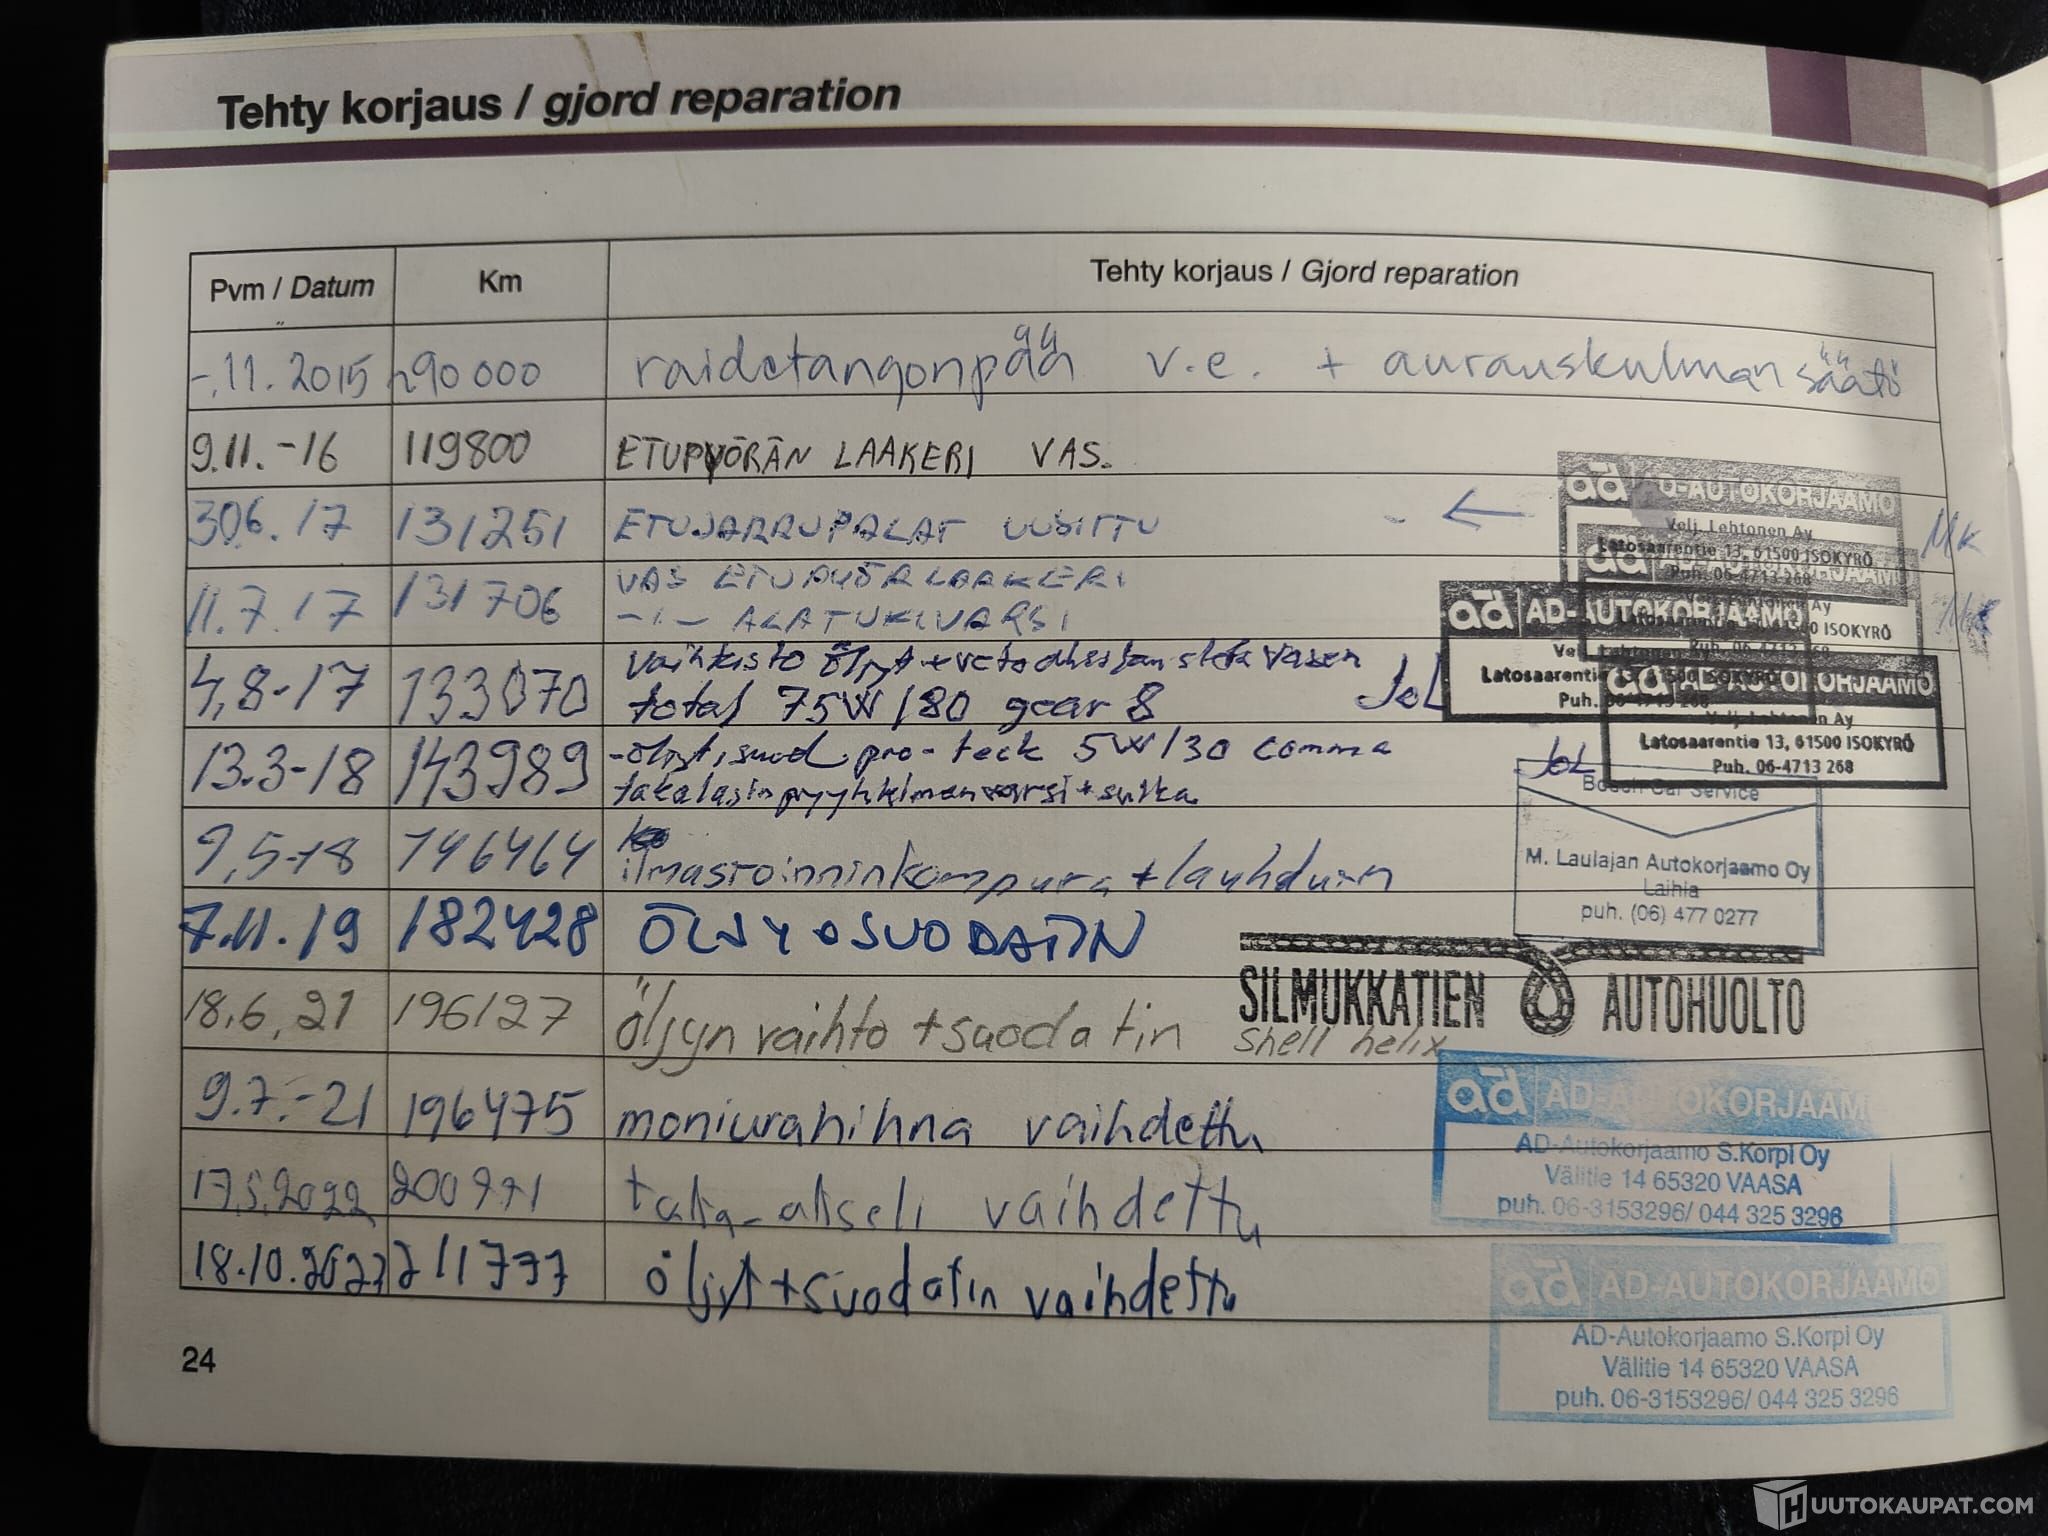 Tehty korjaus / gjord reparation
Pvm / Datum Km Tehty korjaus / Gjord reparation
-.11.2015 n90 000 raidetangonpää v.e. + aurauskulman säätö
9.11.-16 119800 ETUPYÖRÄN LAAKERI VAS.
30.6.17 131251 ETUJARRUPALAT UUSITTU - ← MK
11.7.17 131706 VAS ETUPYÖRLAAKERI
-"- ALATUKIVARSI
4,8-17 133070 vaihteisto öljyt + vetoakselan stefa vasen
total 75W/80 gear 8 JoL
13.3-18 143989 -öljyt, suod. pro-teck 5W/30 comma
takalasinpyyhkimenvarsi+sulka JoL
9,5-18 146464 ilmastoinninkompura + lauhdutin
7.11.19 182428 ÖLJY + SUODATIN
18.6,21 196127 öljyn vaihto + suodatin shell helix
9.7.-21 196475 moniurahihna vaihdettu
17.5.2022 200771 taka-akseli vaihdettu
18.10.2023 211777 öljyt + suodatin vaihdettu
ad AD-AUTOKORJAAMO
Velj. Lehtonen Ay
Latosaarentie 13, 61500 ISOKYRÖ
Puh. 06-4713 268
ad AD-AUTOKORJAAMO
ISOKYRÖ
ad AD-AUTOKORJAAMO
Latosaarentie
Puh.
ad AD-AUTOKORJAAMO
Velj. Lehtonen Ay
Latosaarentie 13, 61500 ISOKYRÖ
Puh. 06-4713 268
Bosch Car Service
M. Laulajan Autokorjaamo Oy
Laihia
puh. (06) 477 0277
SILMUKKATIEN AUTOHUOLTO
ad AD-AUTOKORJAAM
AD-Autokorjaamo S.Korpi Oy
Välitie 14 65320 VAASA
puh. 06-3153296/ 044 325 3296
ad AD-AUTOKORJAAMO
AD-Autokorjaamo S.Korpi Oy
Välitie 14 65320 VAASA
puh. 06-3153296/ 044 325 3296
24
HUUTOKAUPAT.COM